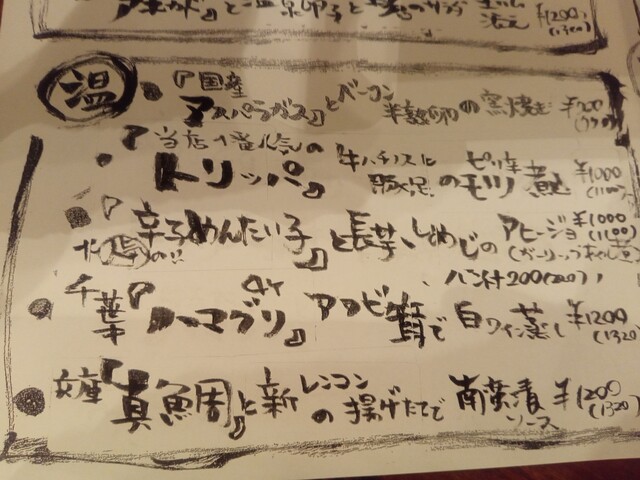 と温泉卵子と 添え ¥1200
(1320)
温
『国産アスパラガス』とベーコン半熟卵の窯焼き ¥700
『当店1番人気のトリッパ』牛ハチノスと豚足のピリ辛モツ煮 ¥1000
(1100)
『辛子めんたい子』と長芋、しめじのアヒージョ ¥1000
(1100)
の!! (ガーリックオイル煮)
バゲ付200(220)
千葉『ハマグリ』4ケ アワビ茸で白ワイン蒸し ¥1200
(1320
『真鯛』と新レンコンの揚げたてで南蛮漬ソース ¥1200
(1320)